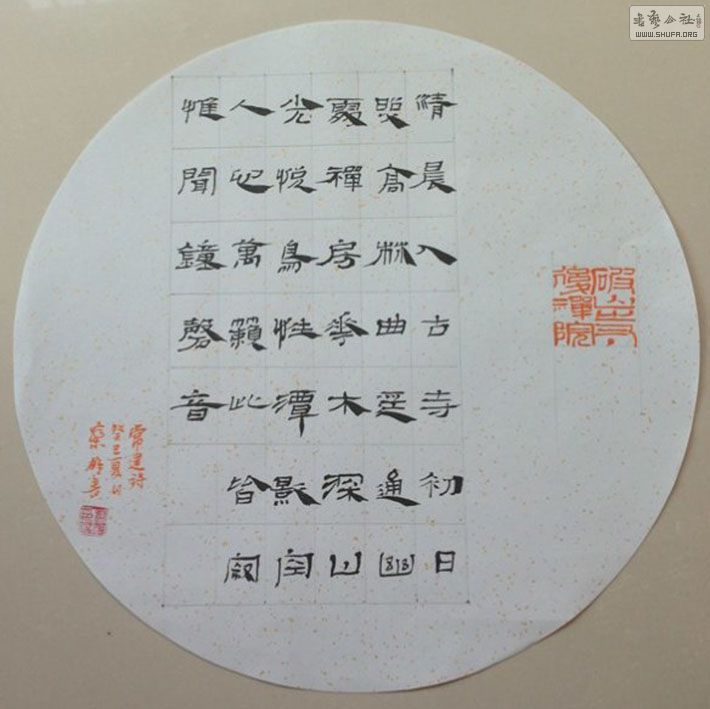 破山寺
後禪院
清晨入古寺初日
照高林曲逕通幽
處禪房花木深山
光悅鳥性潭影空
人心萬籟此皆寂
惟聞鐘磬音
常建詩
癸巳夏月
書
書藝公社
WWW.SHUFA.ORG